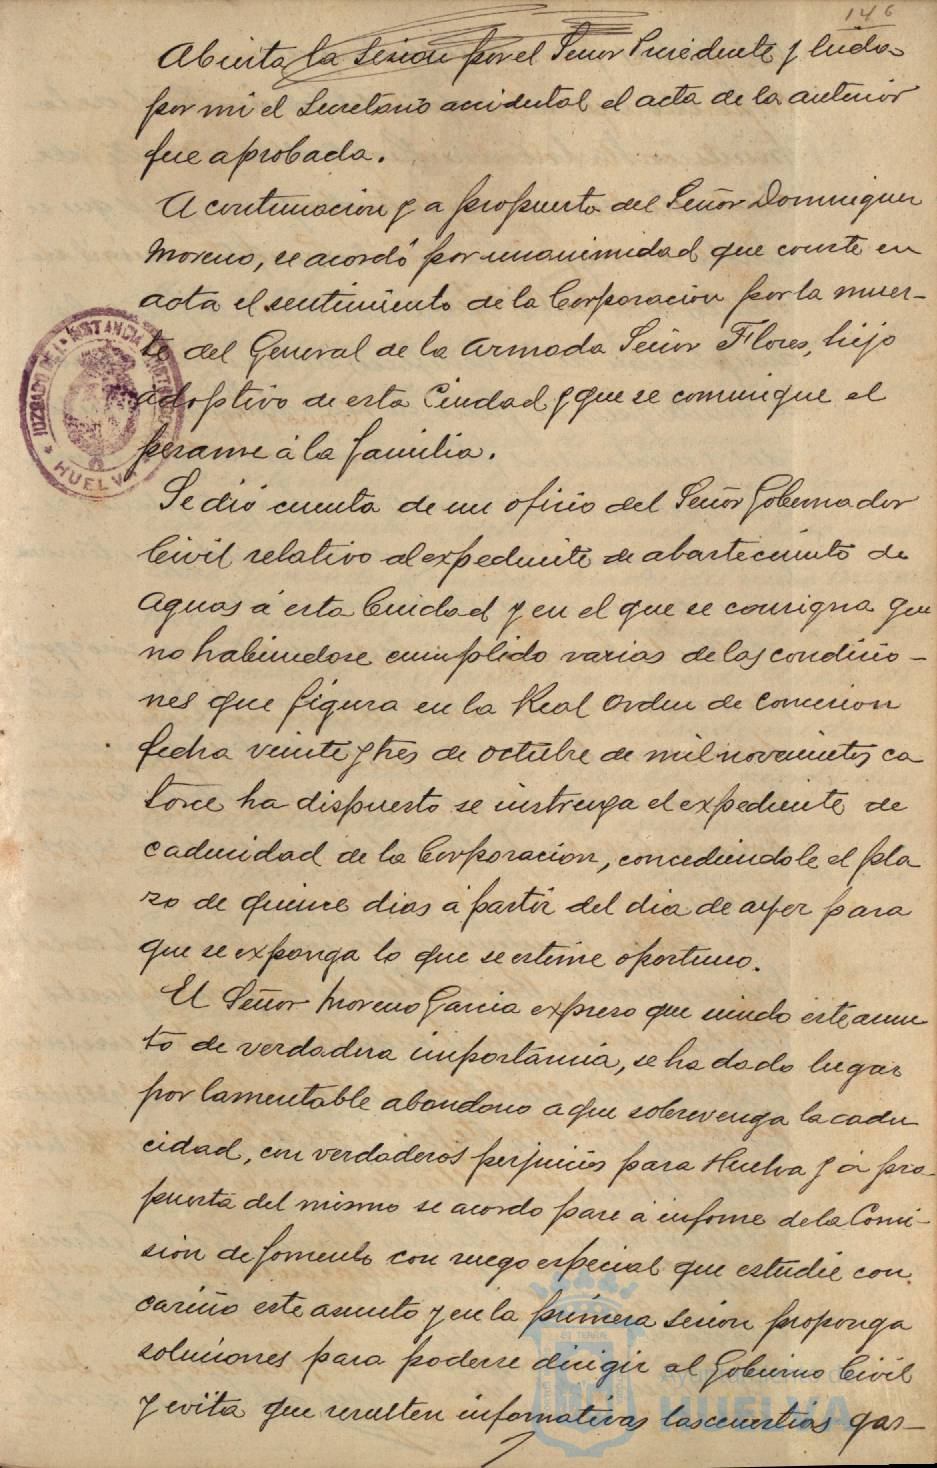 146
Abierta la Sesion por el Señor Presidente y leida
por mi el Secretario accidental el acta de la anterior
fue aprobada.
A continuacion y a propuesta del Señor Dominguez
Moreno, se acordó por unanimidad que conste en
acta el sentimiento de la Corporacion por la muer-
te del General de la Armada Señor Flores, hijo
adoptivo de esta Ciudad y que se comunique el
pesame á la familia.
Se dió cuenta de un oficio del Señor Gobernador
Civil relativo al expediente de abastecimiento de
Aguas á esta Ciudad y en el que se consigna que
no habiendose cumplido varias de las condicio-
nes que figura en la Real Orden de Concesion
fecha veinte y tres de Octubre de mil novecientos ca
torce ha dispuesto se instruya el expediente de
caducidad de la Corporacion, concediendole el pla
zo de quince dias á partir del dia de ayer para
que se exponga lo que se estime oportuno.
El Señor Moreno Garcia expreso que siendo este asun
to de verdadera importancia, se ha dado lugar
por lamentable abandono a que sobrevenga la cadu
cidad, con verdaderos perjuicios para Huelva y á pro-
puesta del mismo se acordo pase á informe de la Comi-
sion de fomento con ruego especial que estudie con
cariño este asunto y en la primera sesion proponga
soluciones para poderse dirigir al Gobierno Civil
y evita que resulten las gas-
JUZGADO DE 1ª INSTANCIA
HUELVA
AYUNTAMIENTO DE
HUELVA